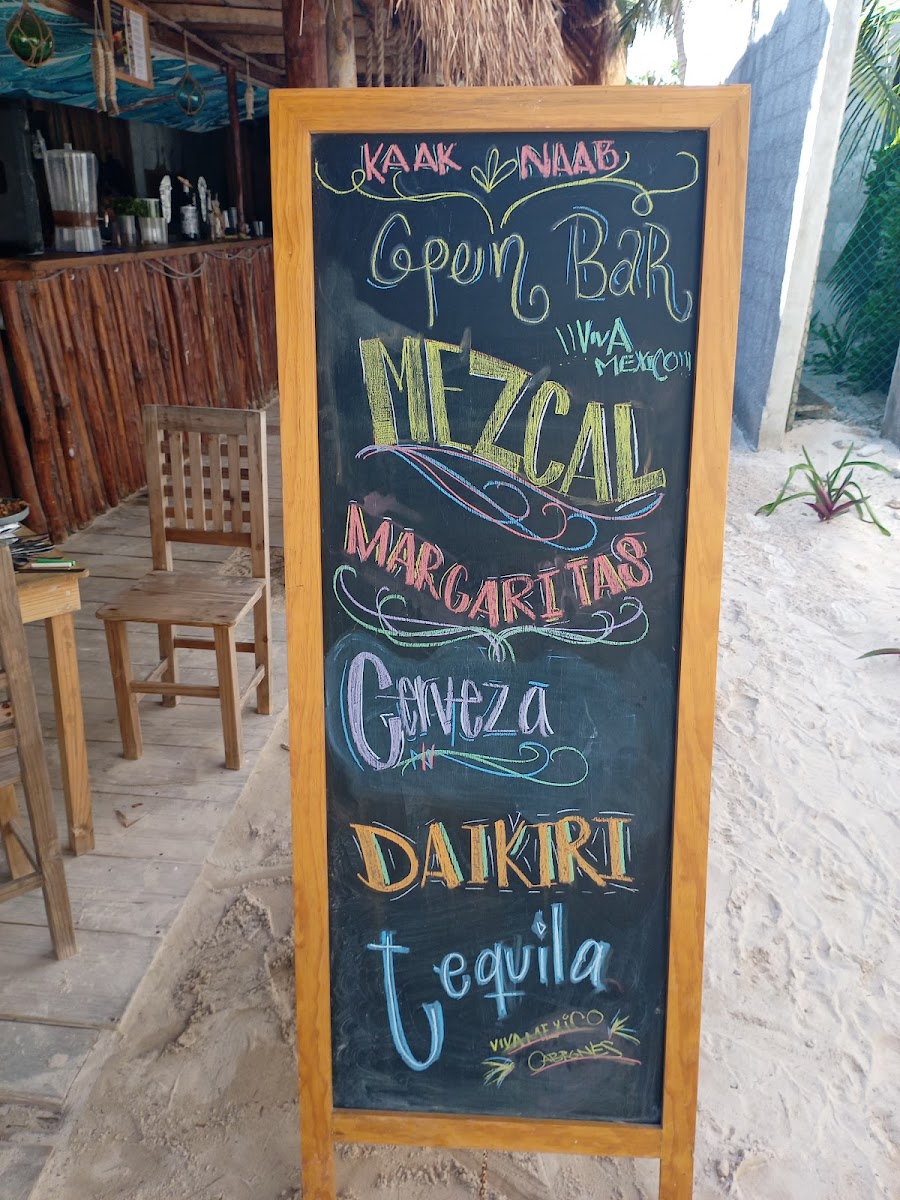 KAAK NAAB
Open BaR
¡¡VivA
MEXiCO!!!
MEZCAL
MARGARITAS
Cerveza
DAIKIRI
tequila
VIVA MEXiCO
CABRONES